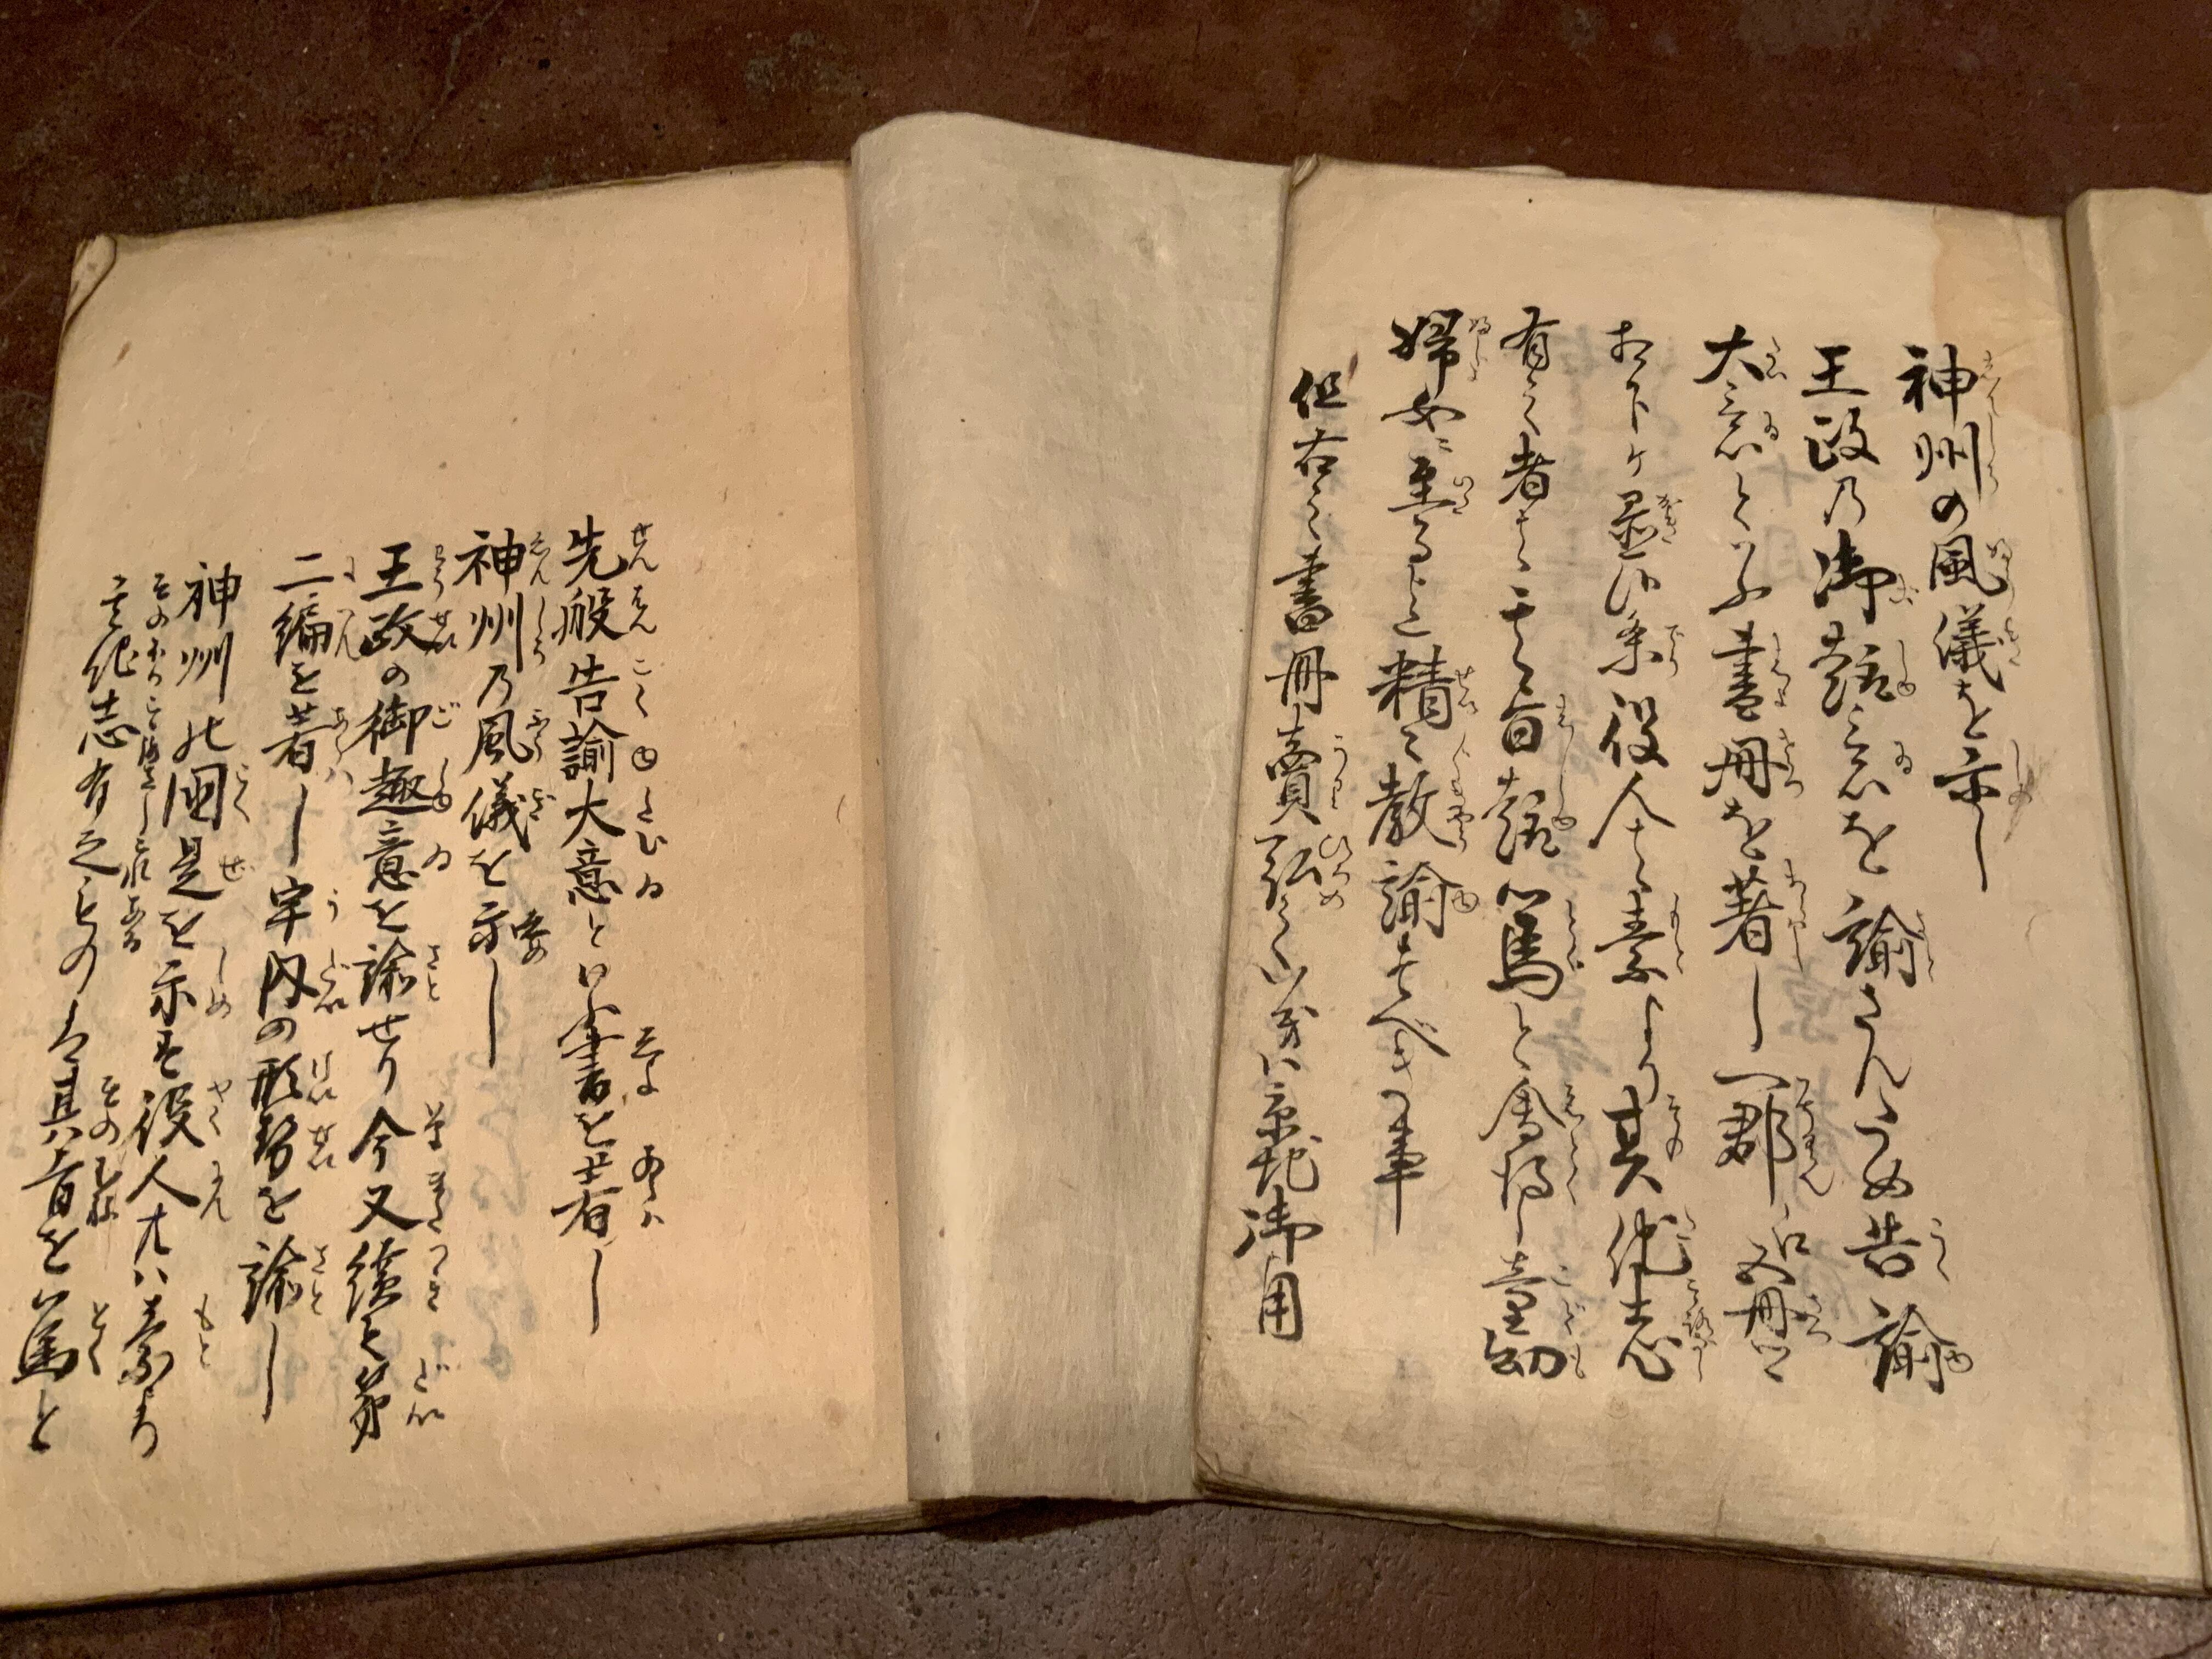 神州の風儀を示し
王政乃御趣意を諭さんため告諭
大意といふ書册を著し一郡に五册ツヽ
相下ヶ置候条役人ハ素より其他志
有之者ハ其旨趣篤と會得し童幼
婦女ニ至る迄精々教諭すべき事
但右之書册賣弘之儀ハ京都御用
先般告諭大意といふ書を著し
神州乃風儀を示し
王政の御趣意を諭せり今又續て第
二編を著し宇内の形勢を諭し
神州の國是を示す役人ハ素より
其他志有之ものハ其旨を篤と